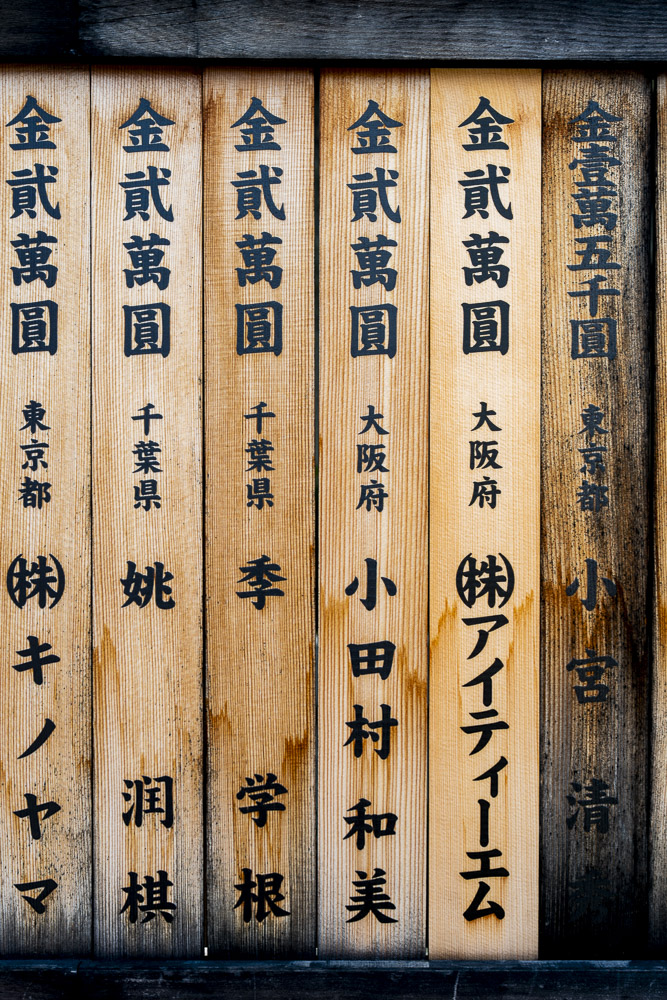 金壹萬五千圓 東京都 小宮 清
金貳萬圓 大阪府 ㈱アイティーエム
金貳萬圓 大阪府 小田村和美
金貳萬圓 千葉県 季 学根
金貳萬圓 千葉県 姚 润棋
金貳萬圓 東京都 ㈱キノヤマ